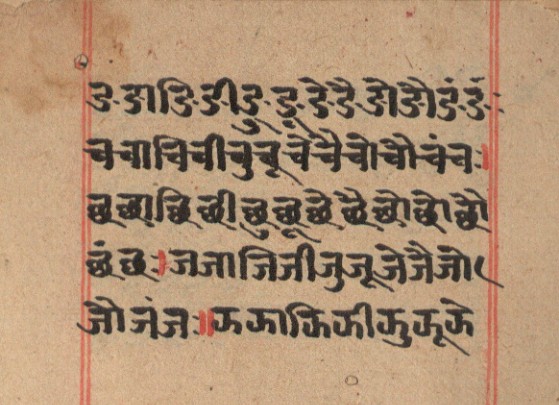 ङ ङा ङि ङी ङु ङू ङे ङै ङो ङौ ङं ङः
च चा चि ची चु चू चे चै चो चौ चं चः ।
छ छा छि छी छु छू छे छै छो छो छौ
छं छः । ज जा जि जी जु जू जे जै जो
जौ जं जः ॥ झ झा झि झी झु झू झे